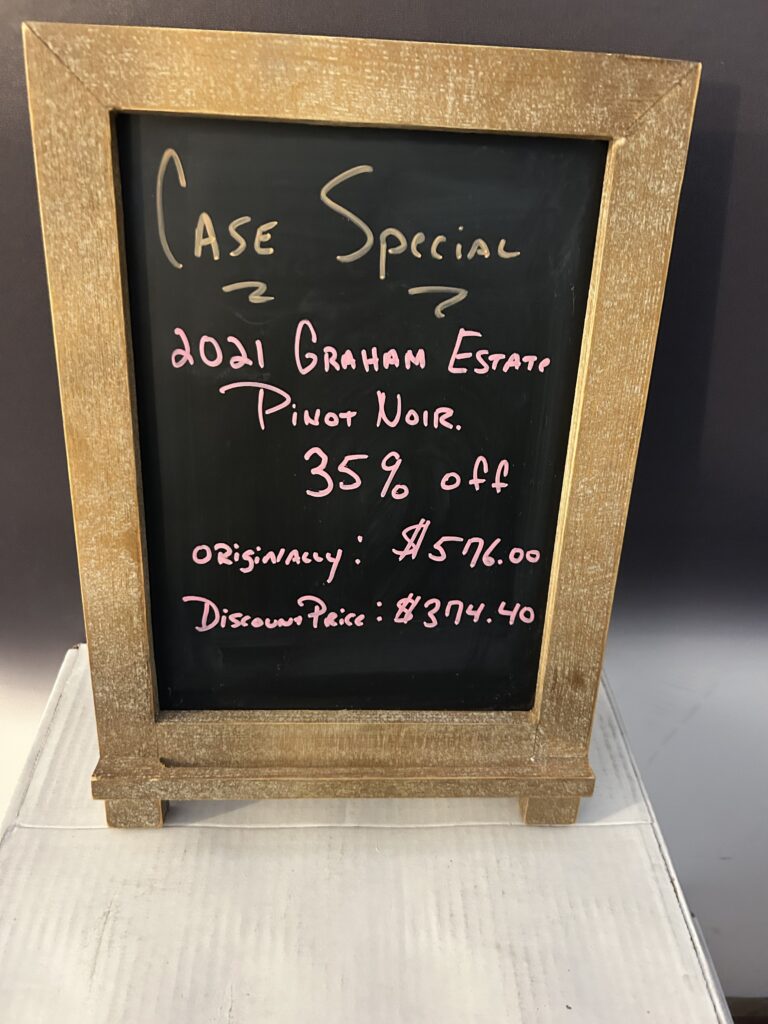 Case Special
2021 Graham Estate
Pinot Noir.
35% off
Originally: $576.00
Discount Price: $374.40